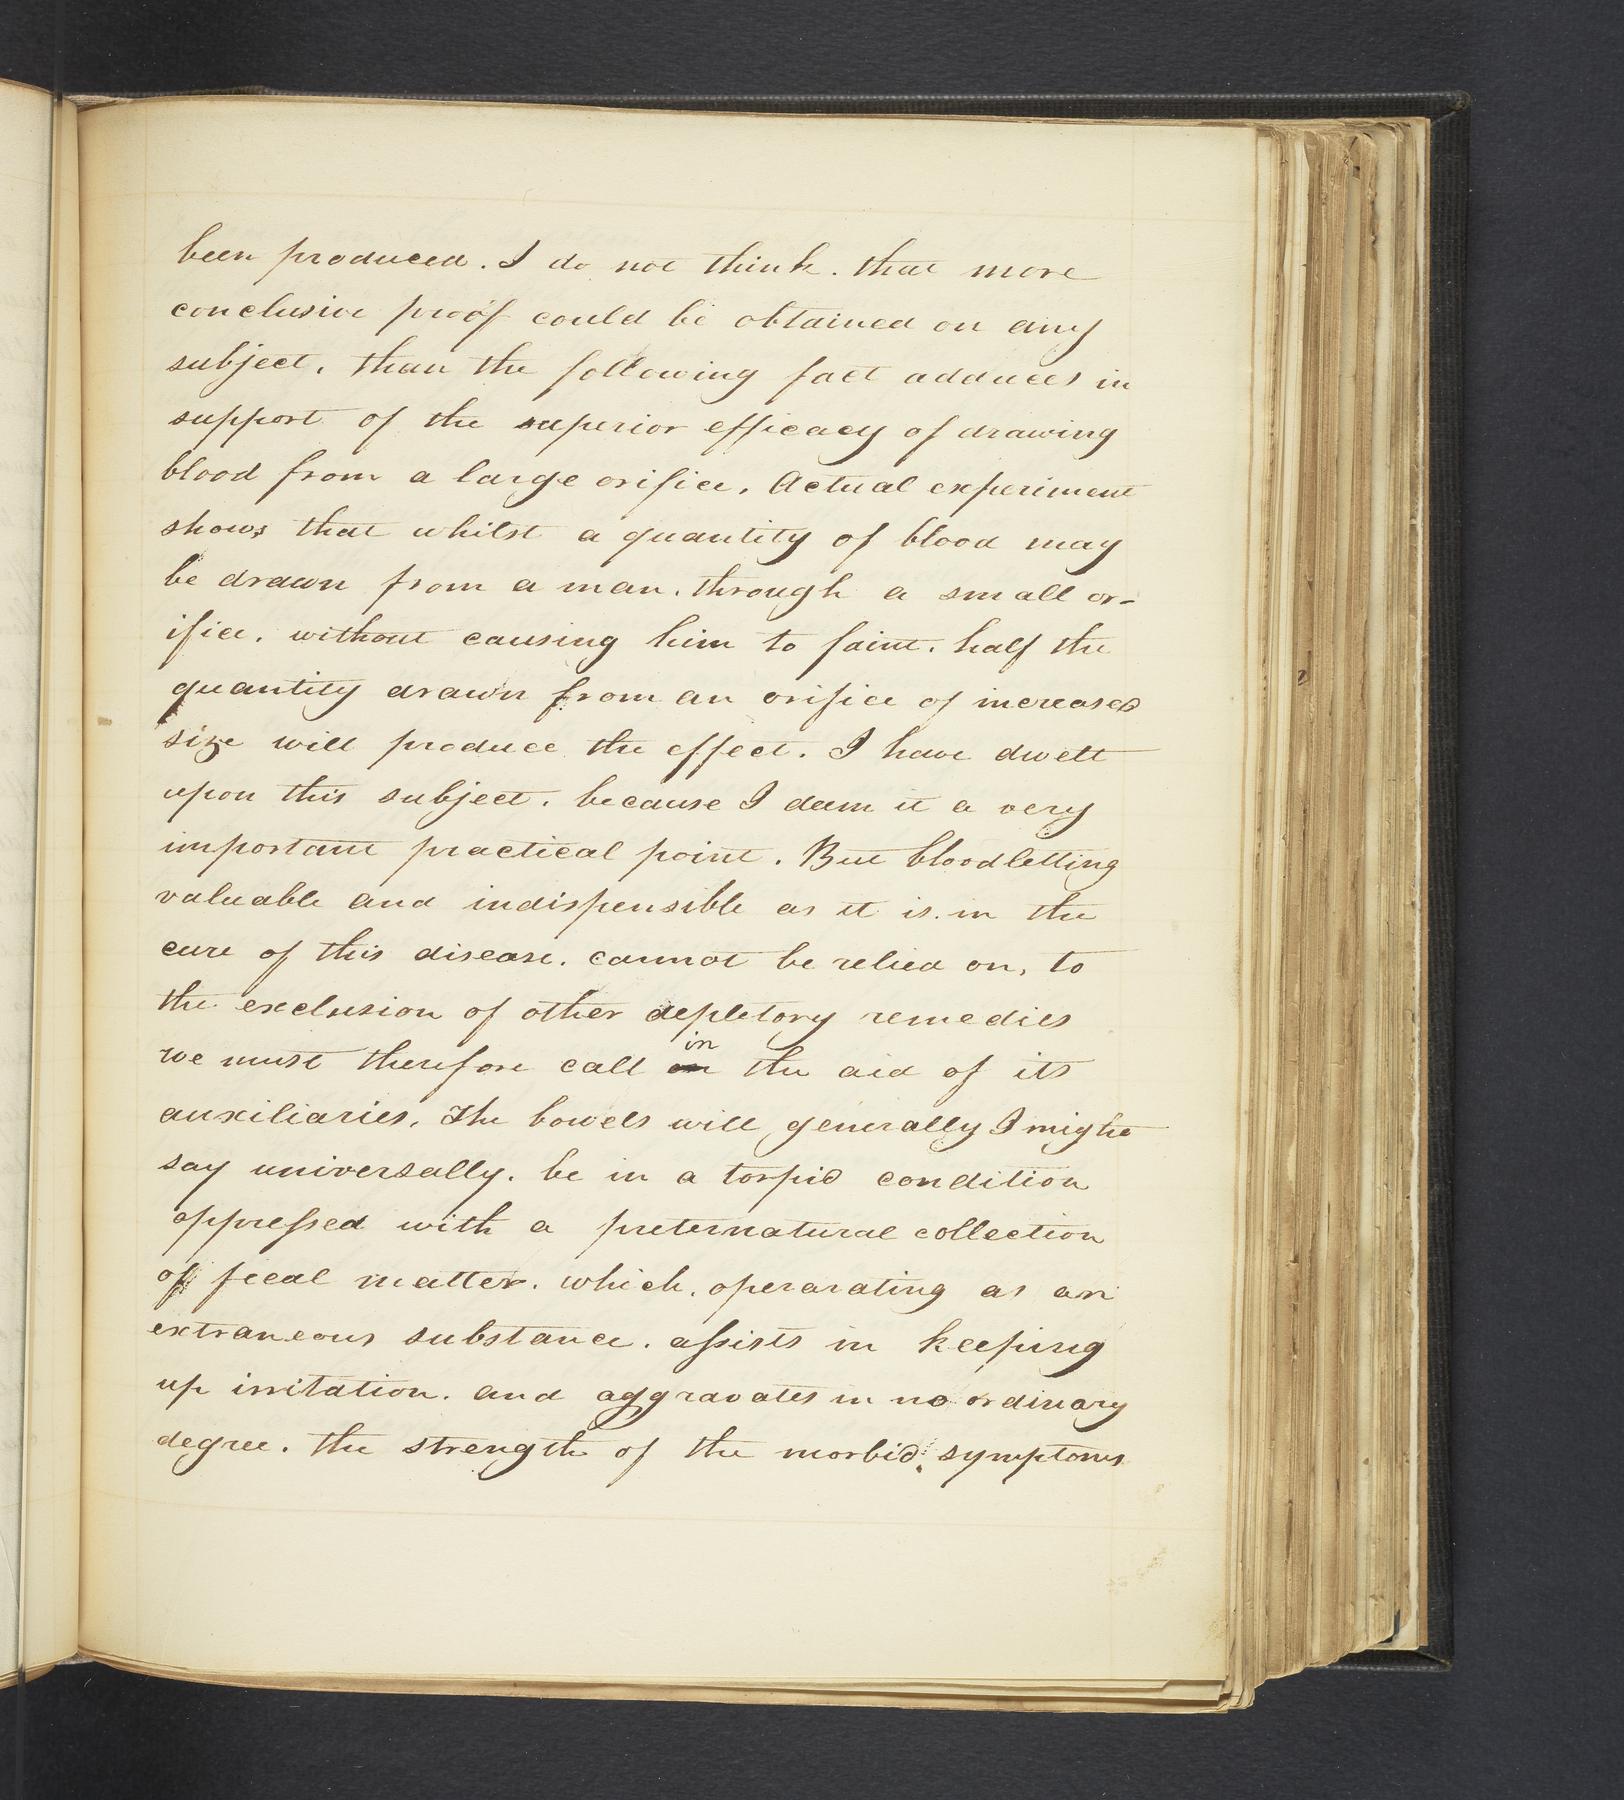 been produced. I do not think. that more
conclusive proof could be obtained on any
subject, than the following fact adduced in
support of the superior efficacy of drawing
blood from a large orifice. Actual experiment
shows that whilst a quantity of blood may
be drawn from a man. through a small or-
ifice. without causing him to faint. half the
quantity drawn from an orifice of increased
size will produce the effect. I have dwelt
upon this subject. because I deem it a very
important practical point. But bloodletting
valuable and indispensible as it is. in the
cure of this disease. cannot be relied on, to
the exclusion of other depletory remedies
we must therefore call in the aid of its
auxiliaries. The bowels will generally I might
say universally. be in a torpid condition
oppressed with a preternatural collection
of fecal matter. which. operarating as an
extraneous substance. assists in keeping
up irritation. and aggravates in no ordinary
degree. the strength of the morbid symptoms